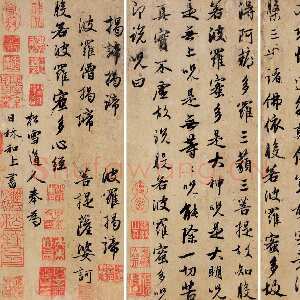 槃三世諸佛依般若波羅蜜多故
得阿耨多羅三藐三菩提故知般
若波羅蜜多是大神咒是大明咒
是無上咒是無等等咒能除一切苦
真實不虛故說般若波羅蜜多咒
即說咒曰
揭諦揭諦 波羅揭諦
波羅僧揭諦 菩提薩婆訶
般若波羅蜜多心經
松雪道人奉為
日林和上書